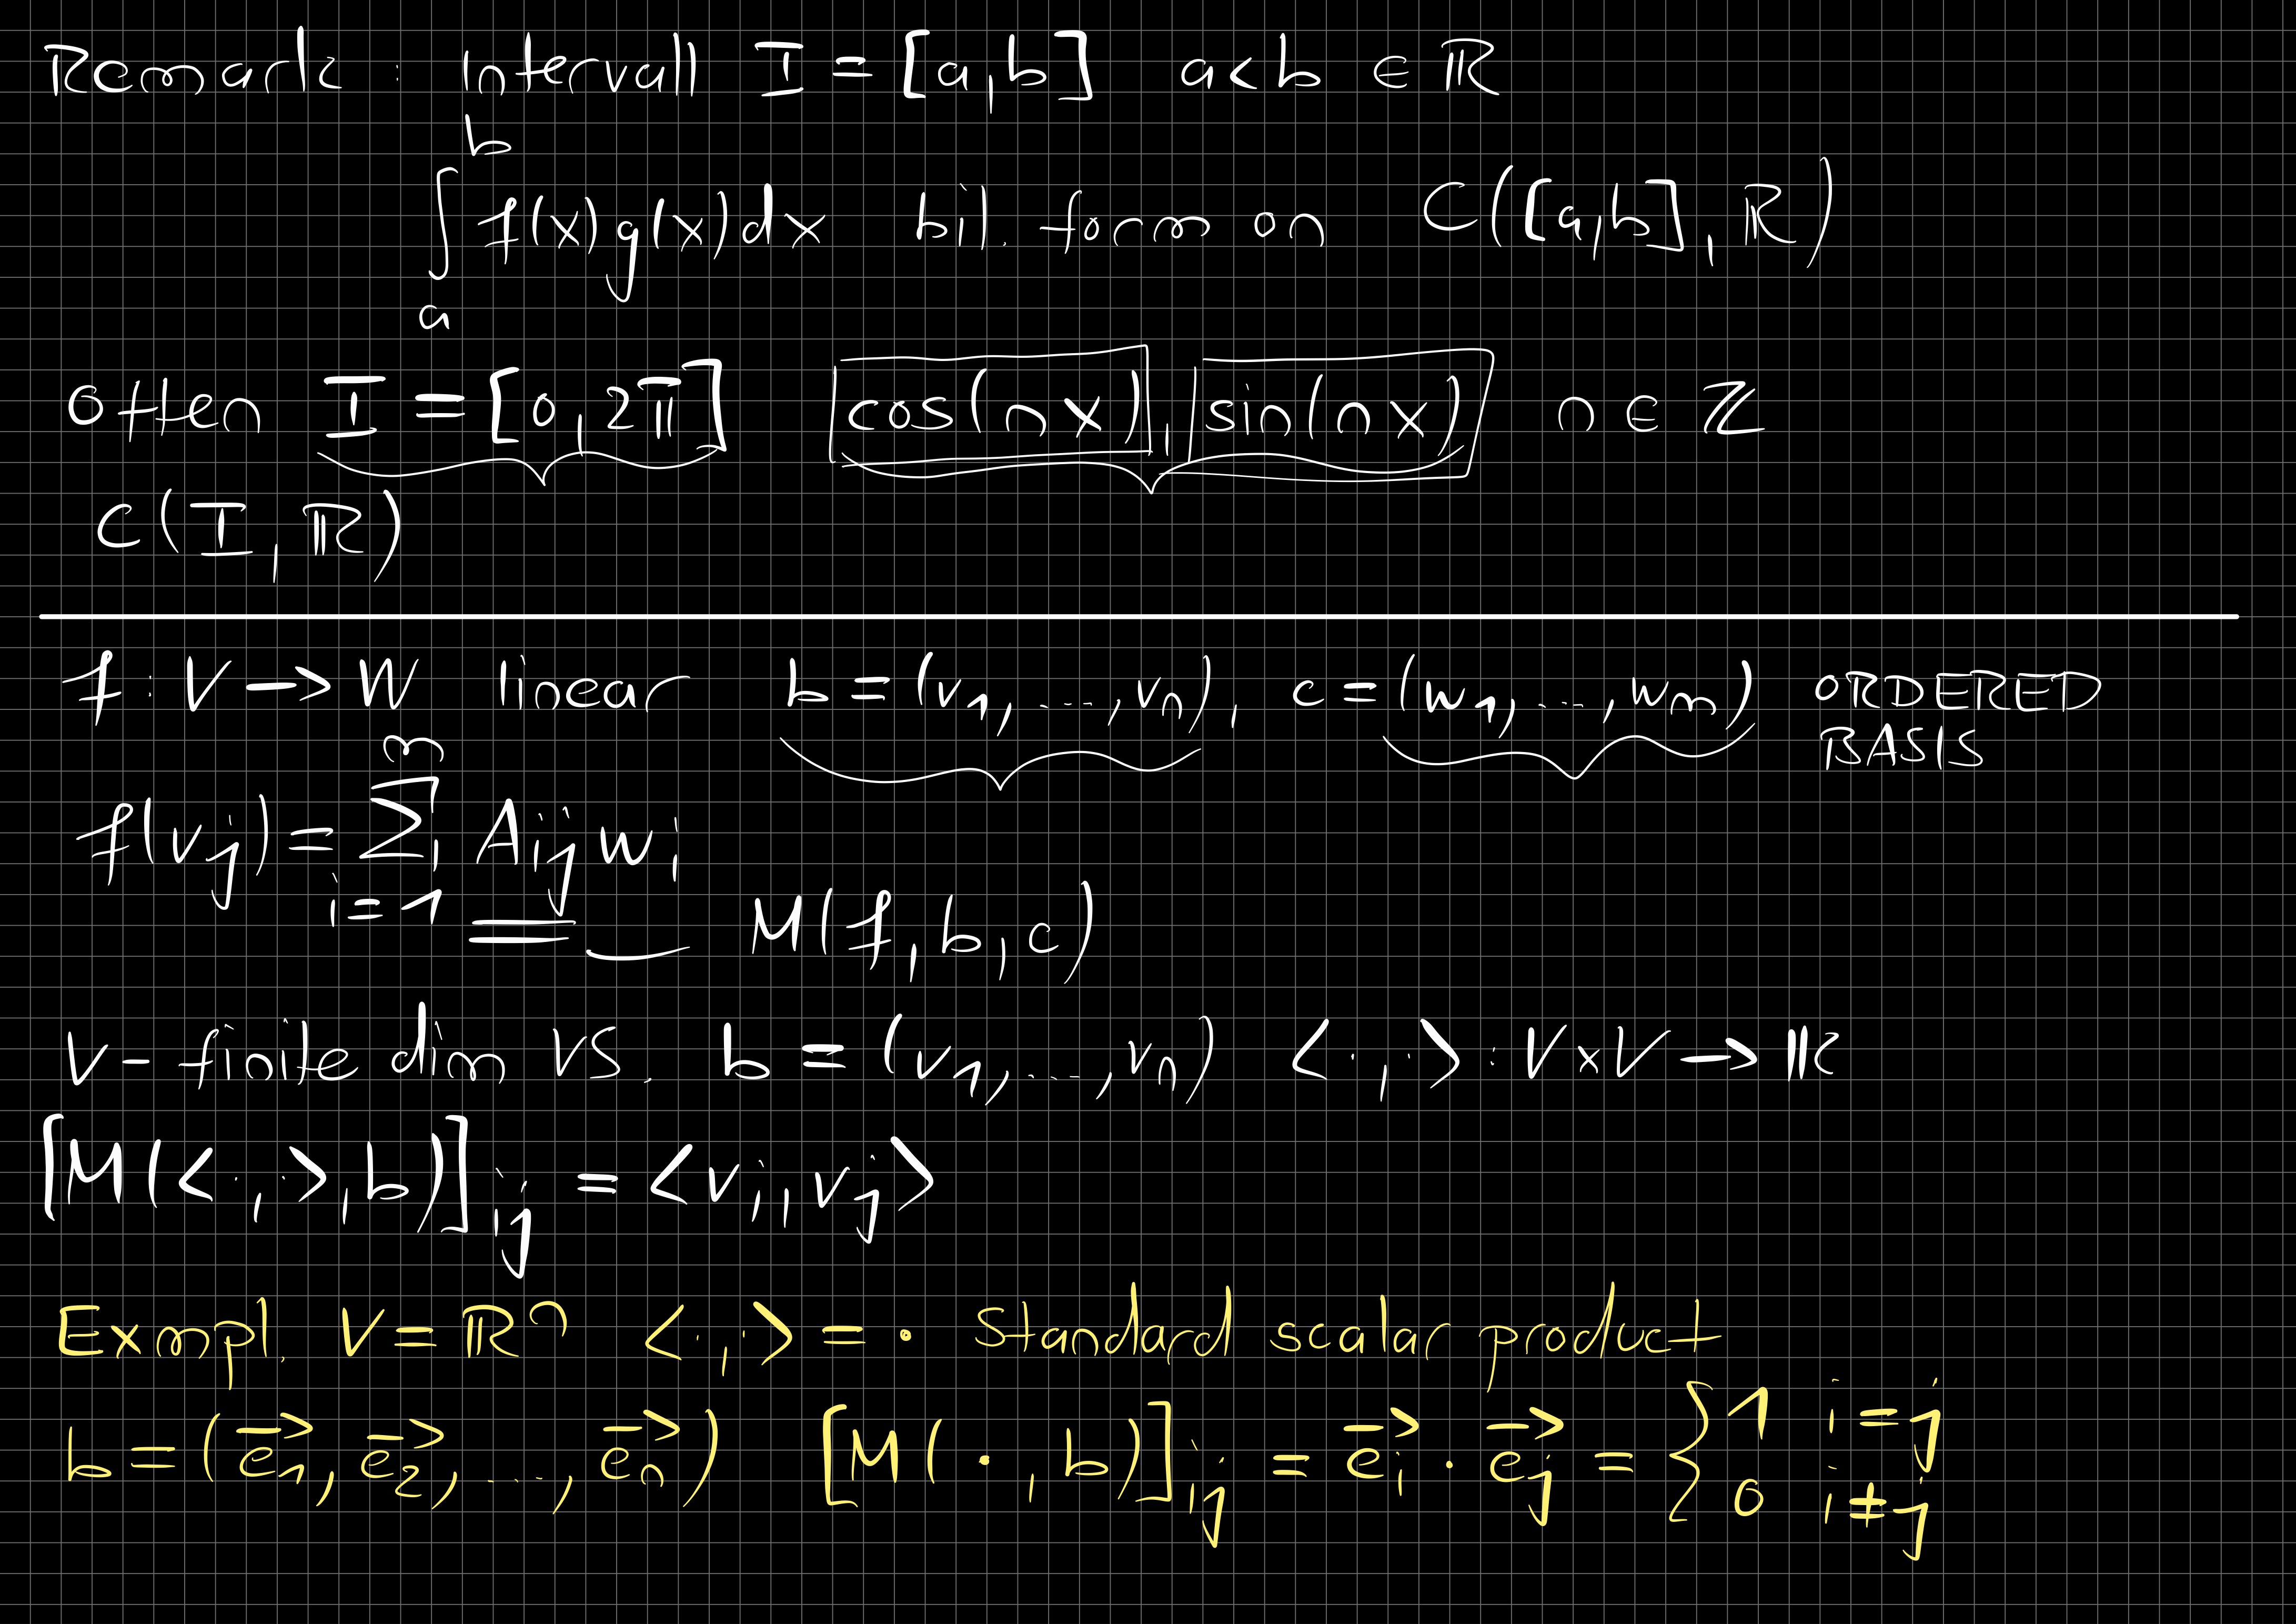 Remark : Intervall I = [a,b] a<b ∈ ℝ
∫_a^b f(x)g(x)dx bil. form on C([a,b], ℝ)
often I = [0, 2π] cos(nx), sin(nx) n ∈ ℤ
C(I, ℝ)
f : V → W linear b = (v₁, ..., vₙ), c = (w₁, ..., wₘ) ORDERED
BASIS
f(v_j) = ∑_{i=1}^m A_{ij} w_i
M(f, b, c)
V - finite dim VS. b = (v₁, ..., vₙ) <·,·> : V×V → K
[M(<·,·>, b)]_{ij} = <v_i, v_j>
Exmpl. V = ℝⁿ <·,·> = · Standard scalar product
b = (e⃗₁, e⃗₂, ..., e⃗ₙ) [M(·, b)]_{ij} = e⃗_i · e⃗_j = { 1 i = j
0 i ≠ j